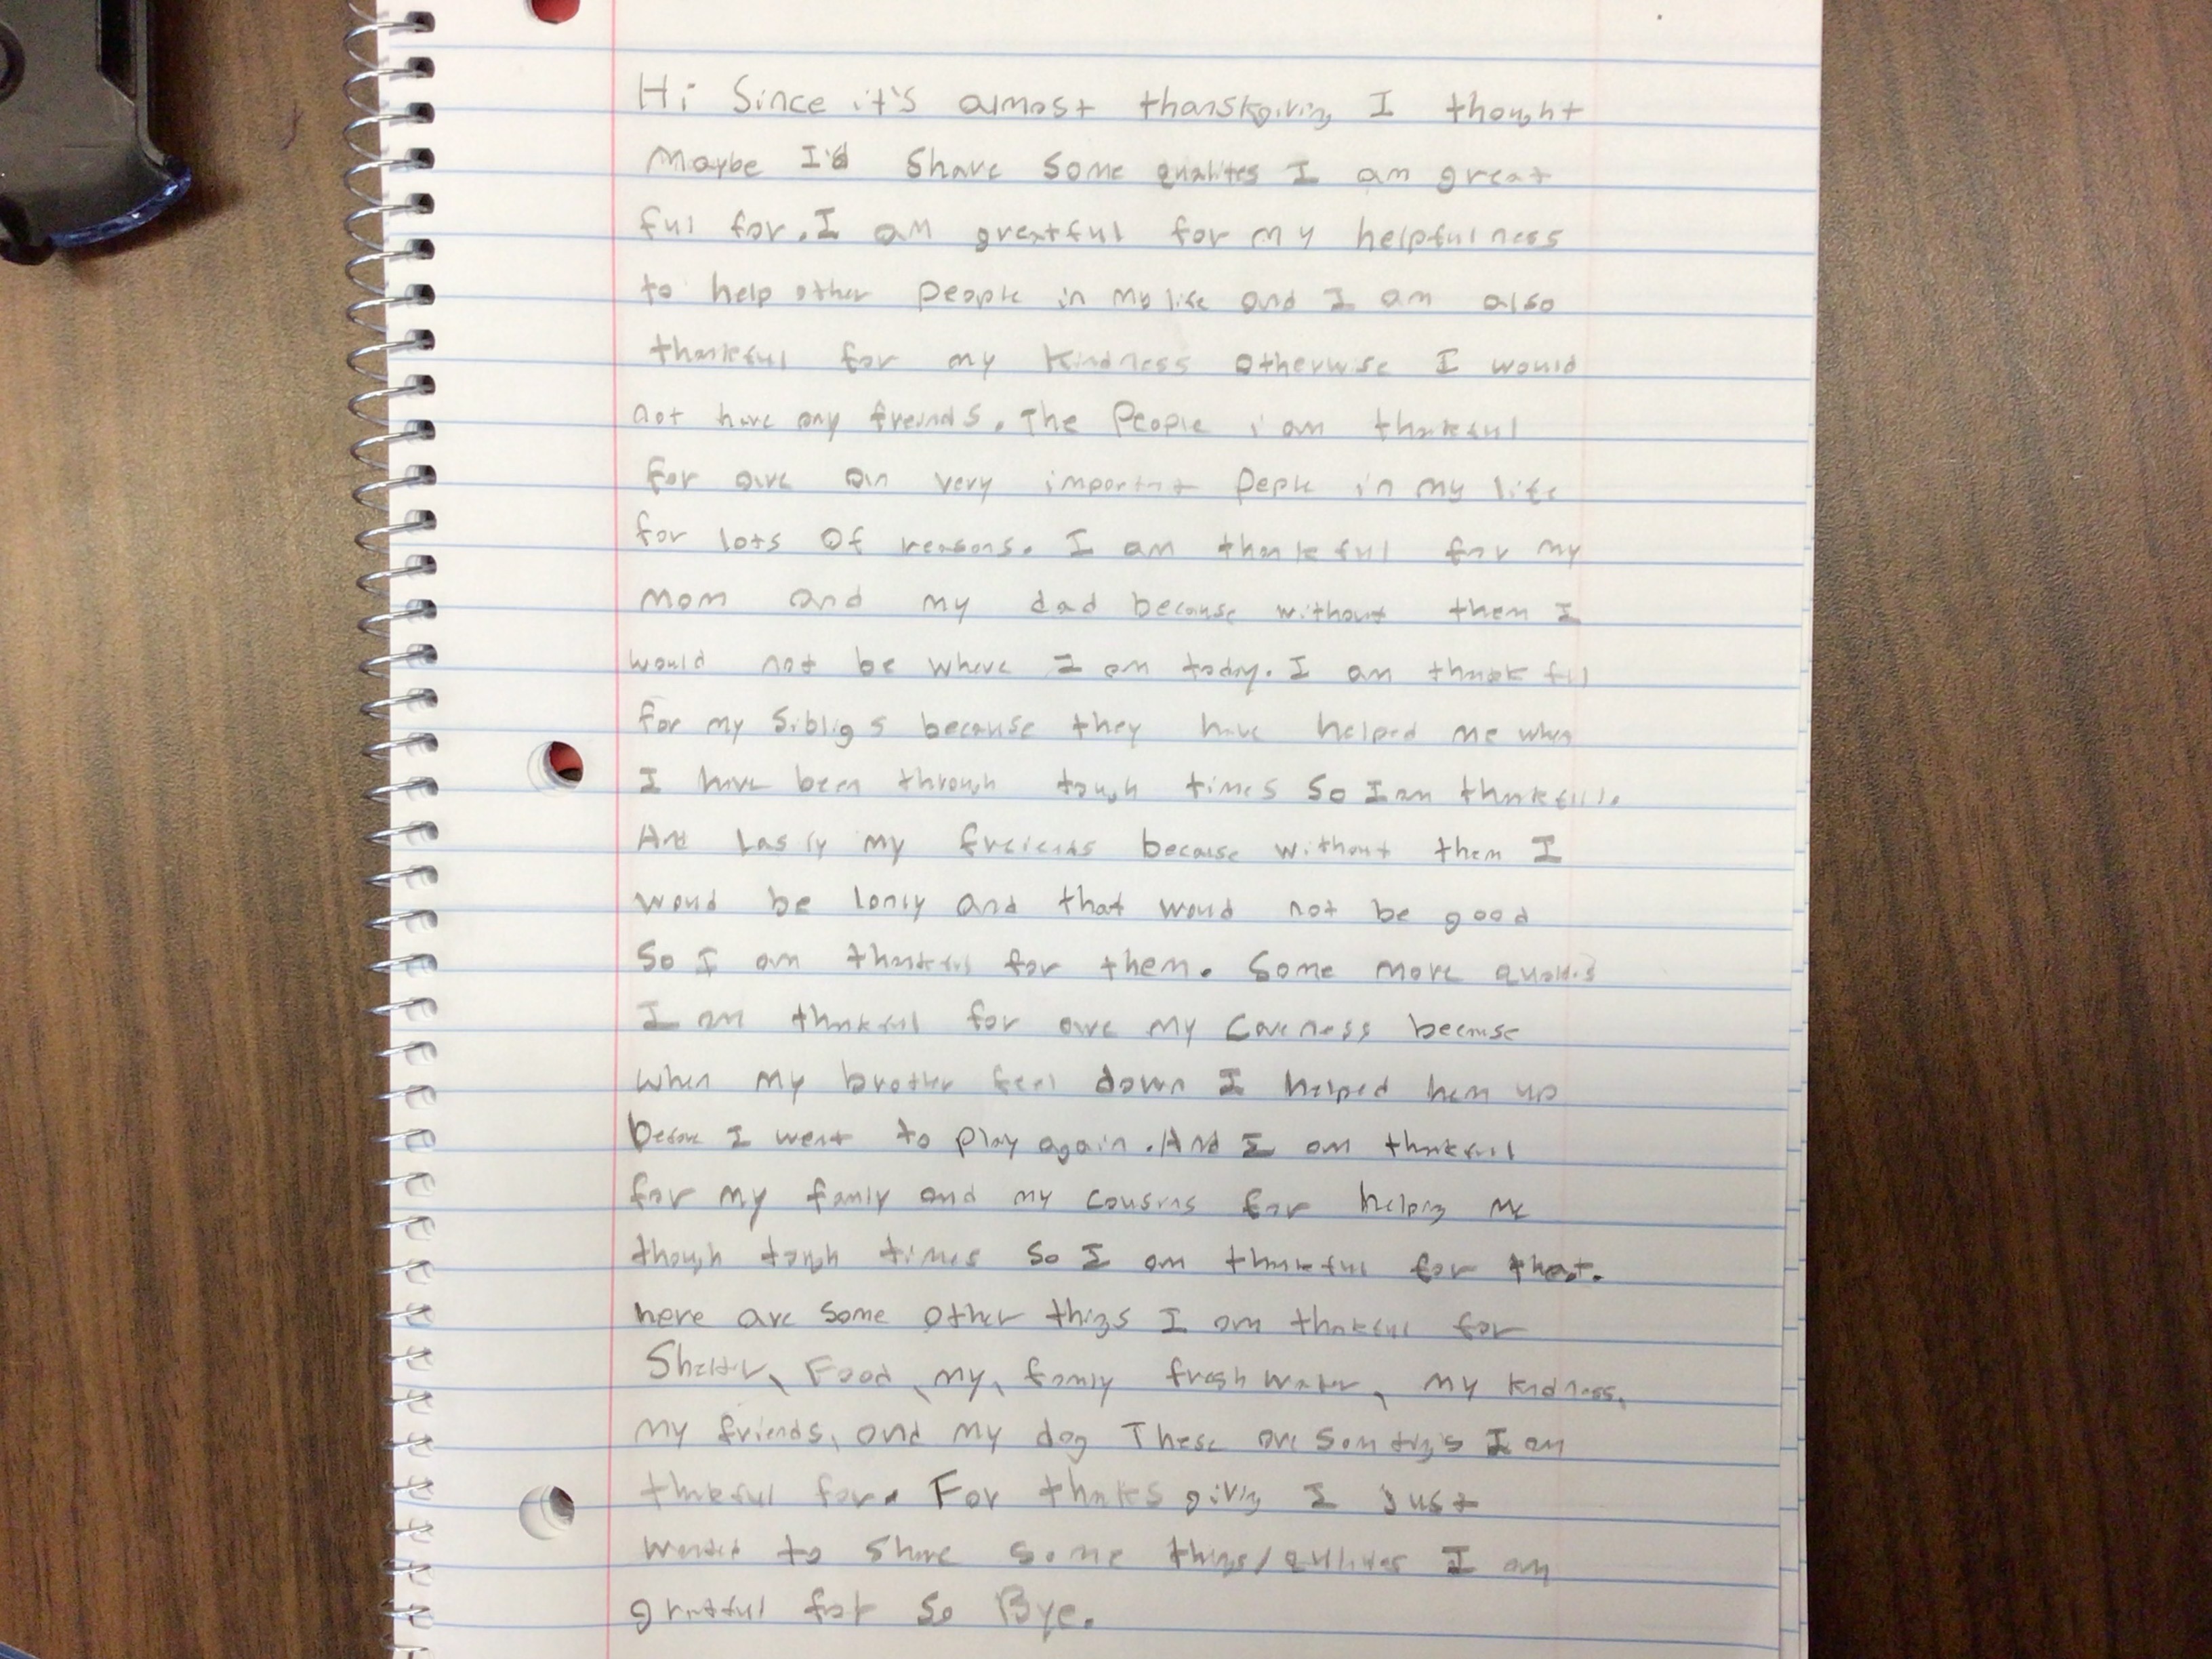 Hi Since it's almost thanskgiving I thought
Maybe I'd Share some qualites I am great
ful for. I am greatful for my helpfulness
to help other people in my life and I am also
thankful for my Kindness otherwise I would
not have any freinds. The People i am thankful
for are an very important peple in my life
for lots of reasons. I am thankful for my
mom and my dad because without them I
would not be where I am today. I am thankful
for my Sibligs because they have helped me when
I have been through tough times So I am thankfull.
And Lasly my freiends because without them I
woud be lonly and that woud not be good
So I am thankful for them. Some more qualites
I am thankful for are my Careness because
when my brother feel down I helped hem up
before I went to play again. And I am thankful
for my famly and my cousins for helping me
though tough times So I am thankful for that.
here are some other thigs I am thankful for
Shelter, Food, my, famly fresh water, my kidness,
my friends, and my dog These are som I am
thankful for. For thanksgiving I just
wanted to share some things/ I am
gratful for So Bye.